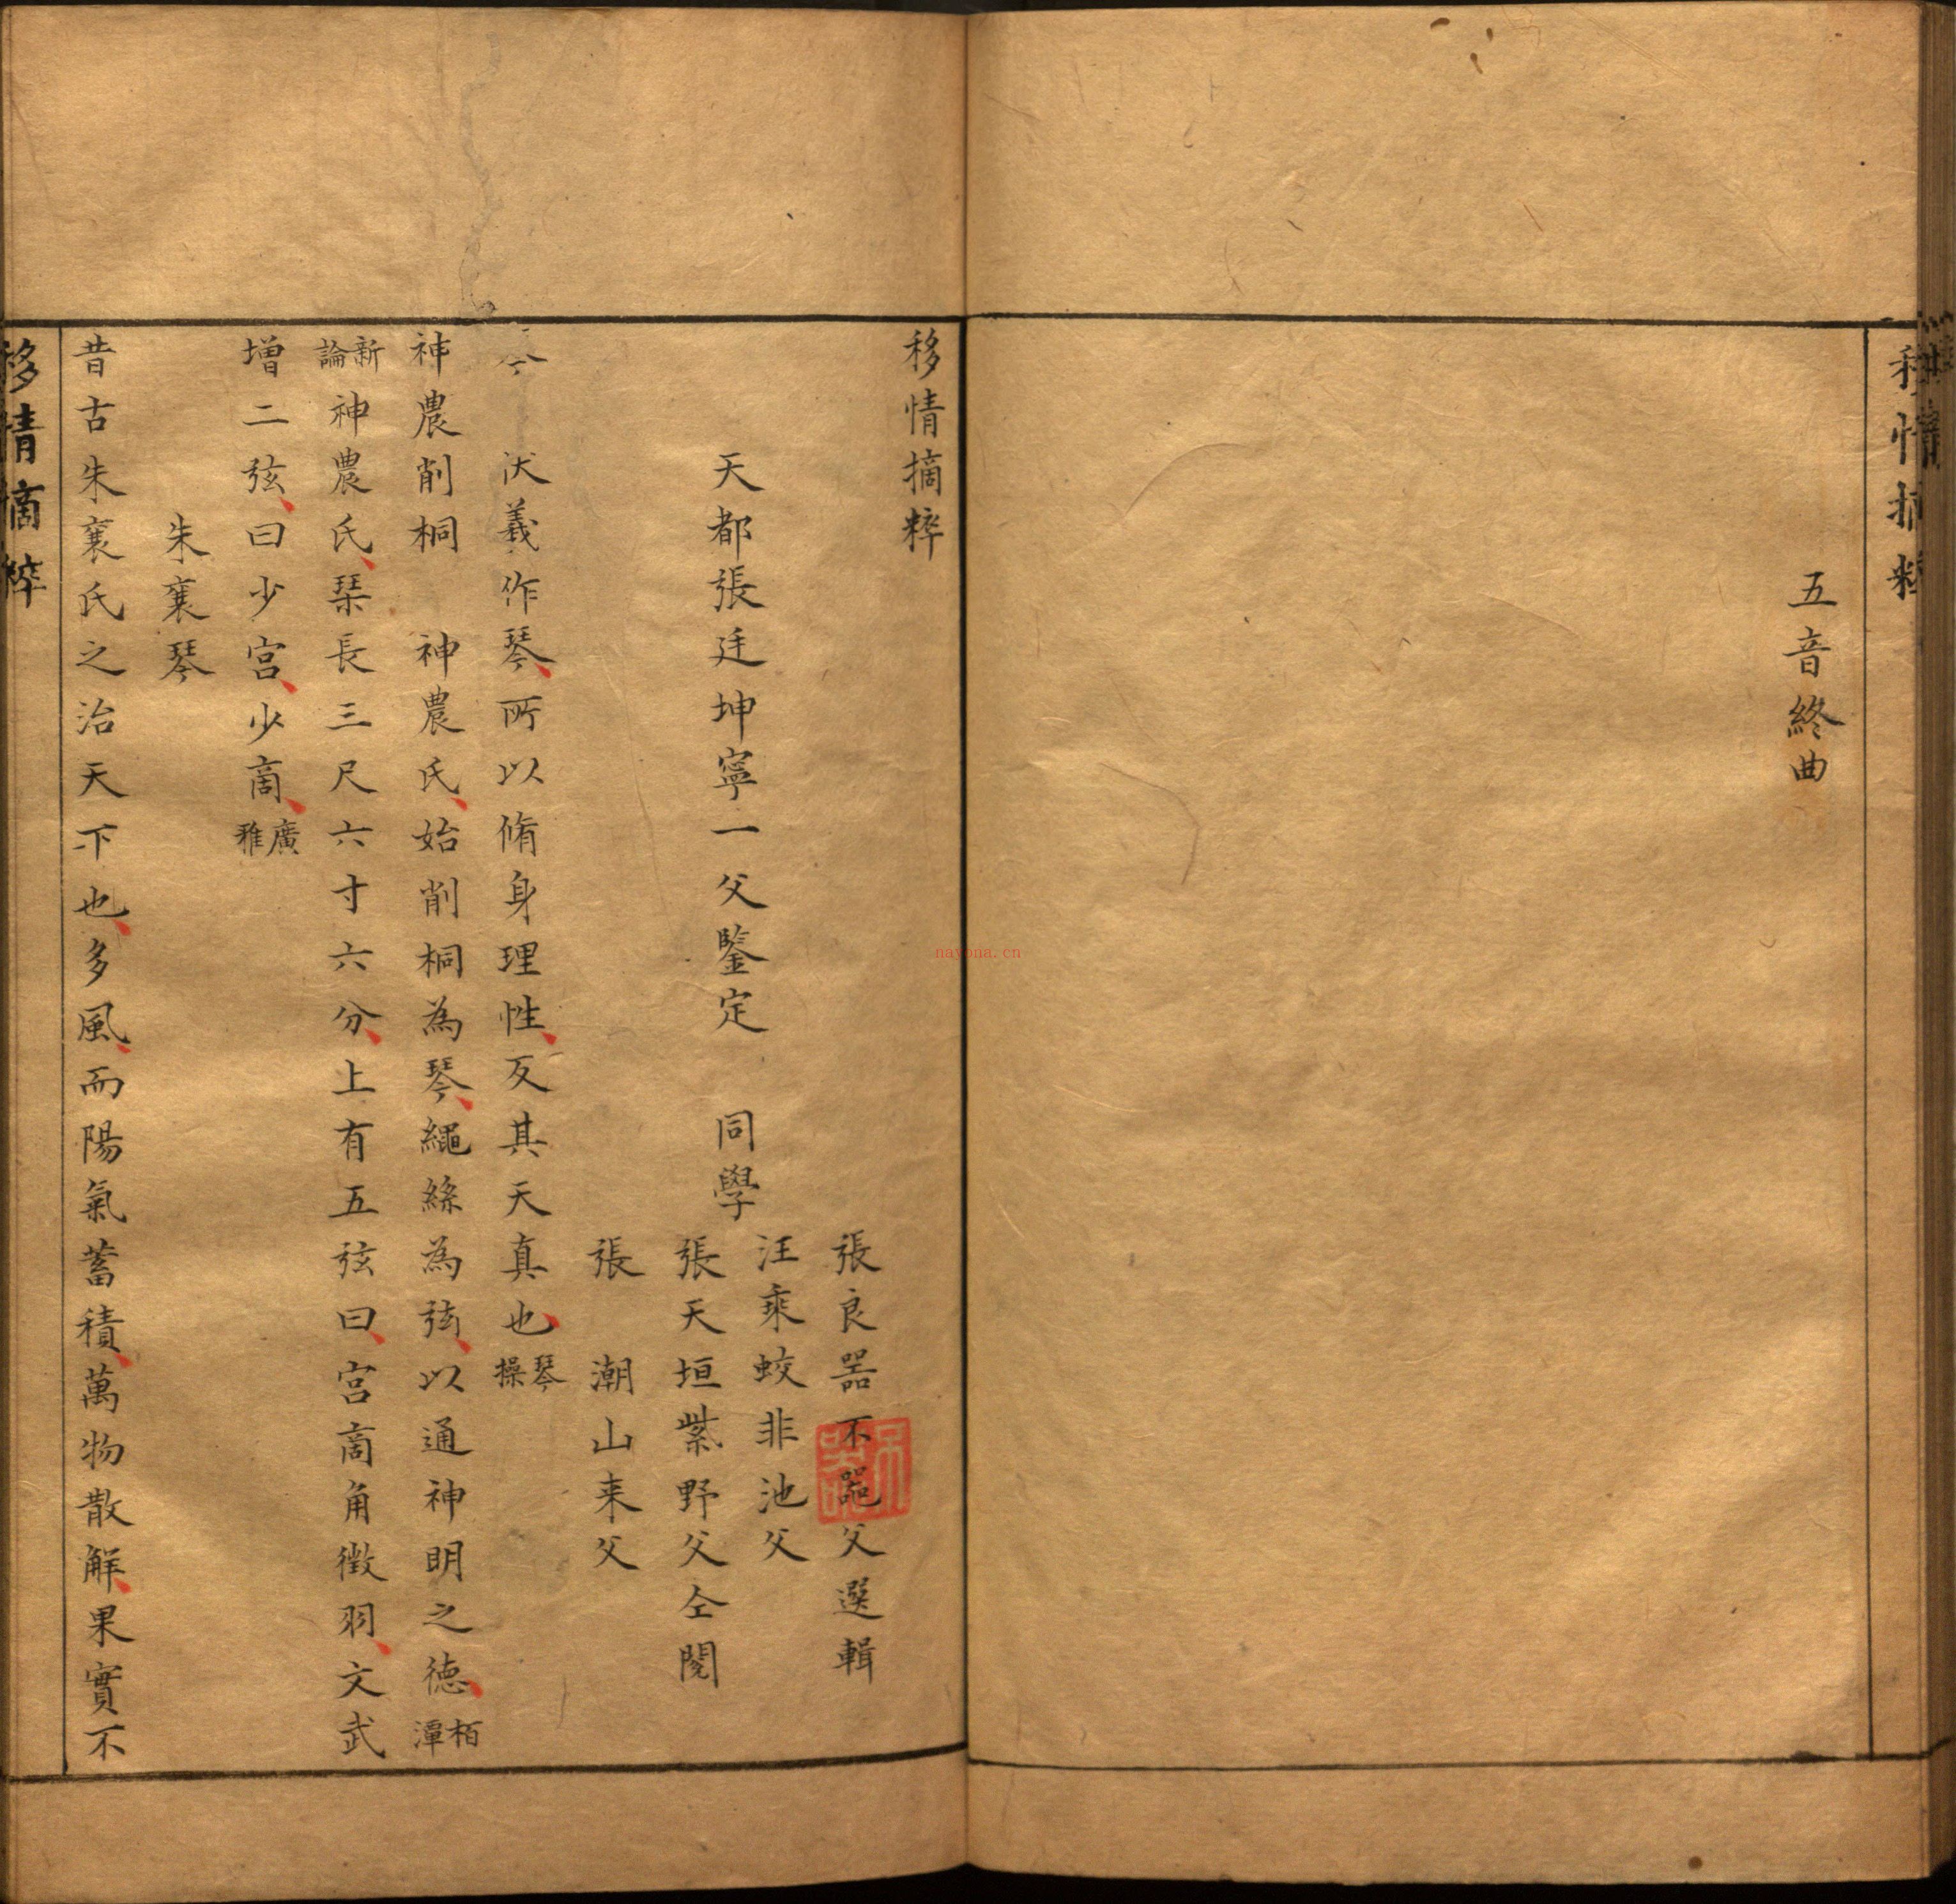 五音終曲
移情摘粹
張良噐不噐父選輯
汪乘蛟非池父
天都張廷坤寧一父鑒定　同學
張天垣紫野父仝閱
張　潮山来父
伏羲作琴所以脩身理性反其天真也琴操
神農削桐　神農氏始削桐為琴繩絲為弦以通神明之德栢潭
新論神農氏琹長三尺六寸六分上有五弦曰宮商角徵羽文武
増二弦曰少宮少商廣雅
朱襄琴
昔古朱襄氏之治天下也多風而陽氣蓄積萬物散解果實不
移情摘粹
nayona.cn